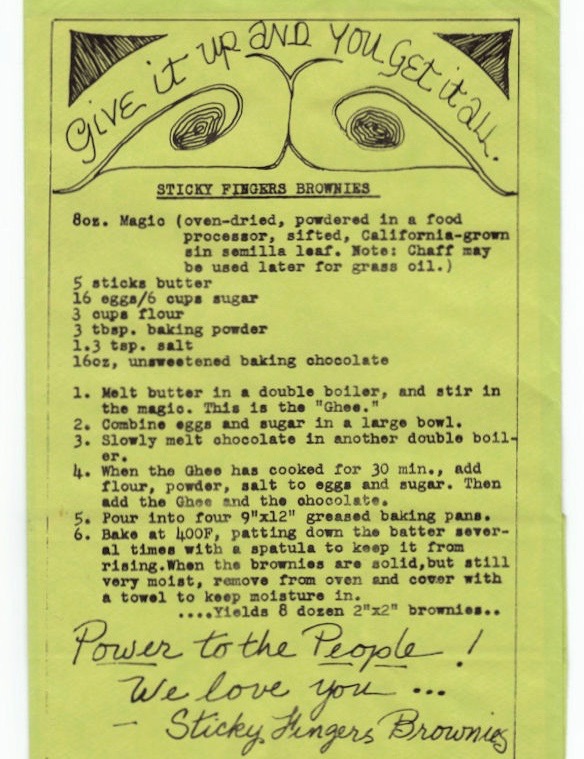 GIVE it UP AND YOU GET it ALL.
STICKY FINGERS BROWNIES
8oz. Magic (oven-dried, powdered in a food
processor, sifted, California-grown
sin semilla leaf. Note: Chaff may
be used later for grass oil.)
5 sticks butter
16 eggs/6 cups sugar
3 cups flour
3 tbsp. baking powder
1.3 tsp. salt
16oz, unsweetened baking chocolate
1. Melt butter in a double boiler, and stir in
the magic. This is the "Ghee."
2. Combine eggs and sugar in a large bowl.
3. Slowly melt chocolate in another double boil-
er.
4. When the Ghee has cooked for 30 min., add
flour, powder, salt to eggs and sugar. Then
add the Ghee and the chocolate.
5. Pour into four 9"x12" greased baking pans.
6. Bake at 400F, patting down the batter sever-
al times with a spatula to keep it from
rising.When the brownies are solid,but still
very moist, remove from oven and cover with
a towel to keep moisture in.
....Yields 8 dozen 2"x2" brownies..
Power to the People !
We love you ...
- Sticky Fingers Brownies